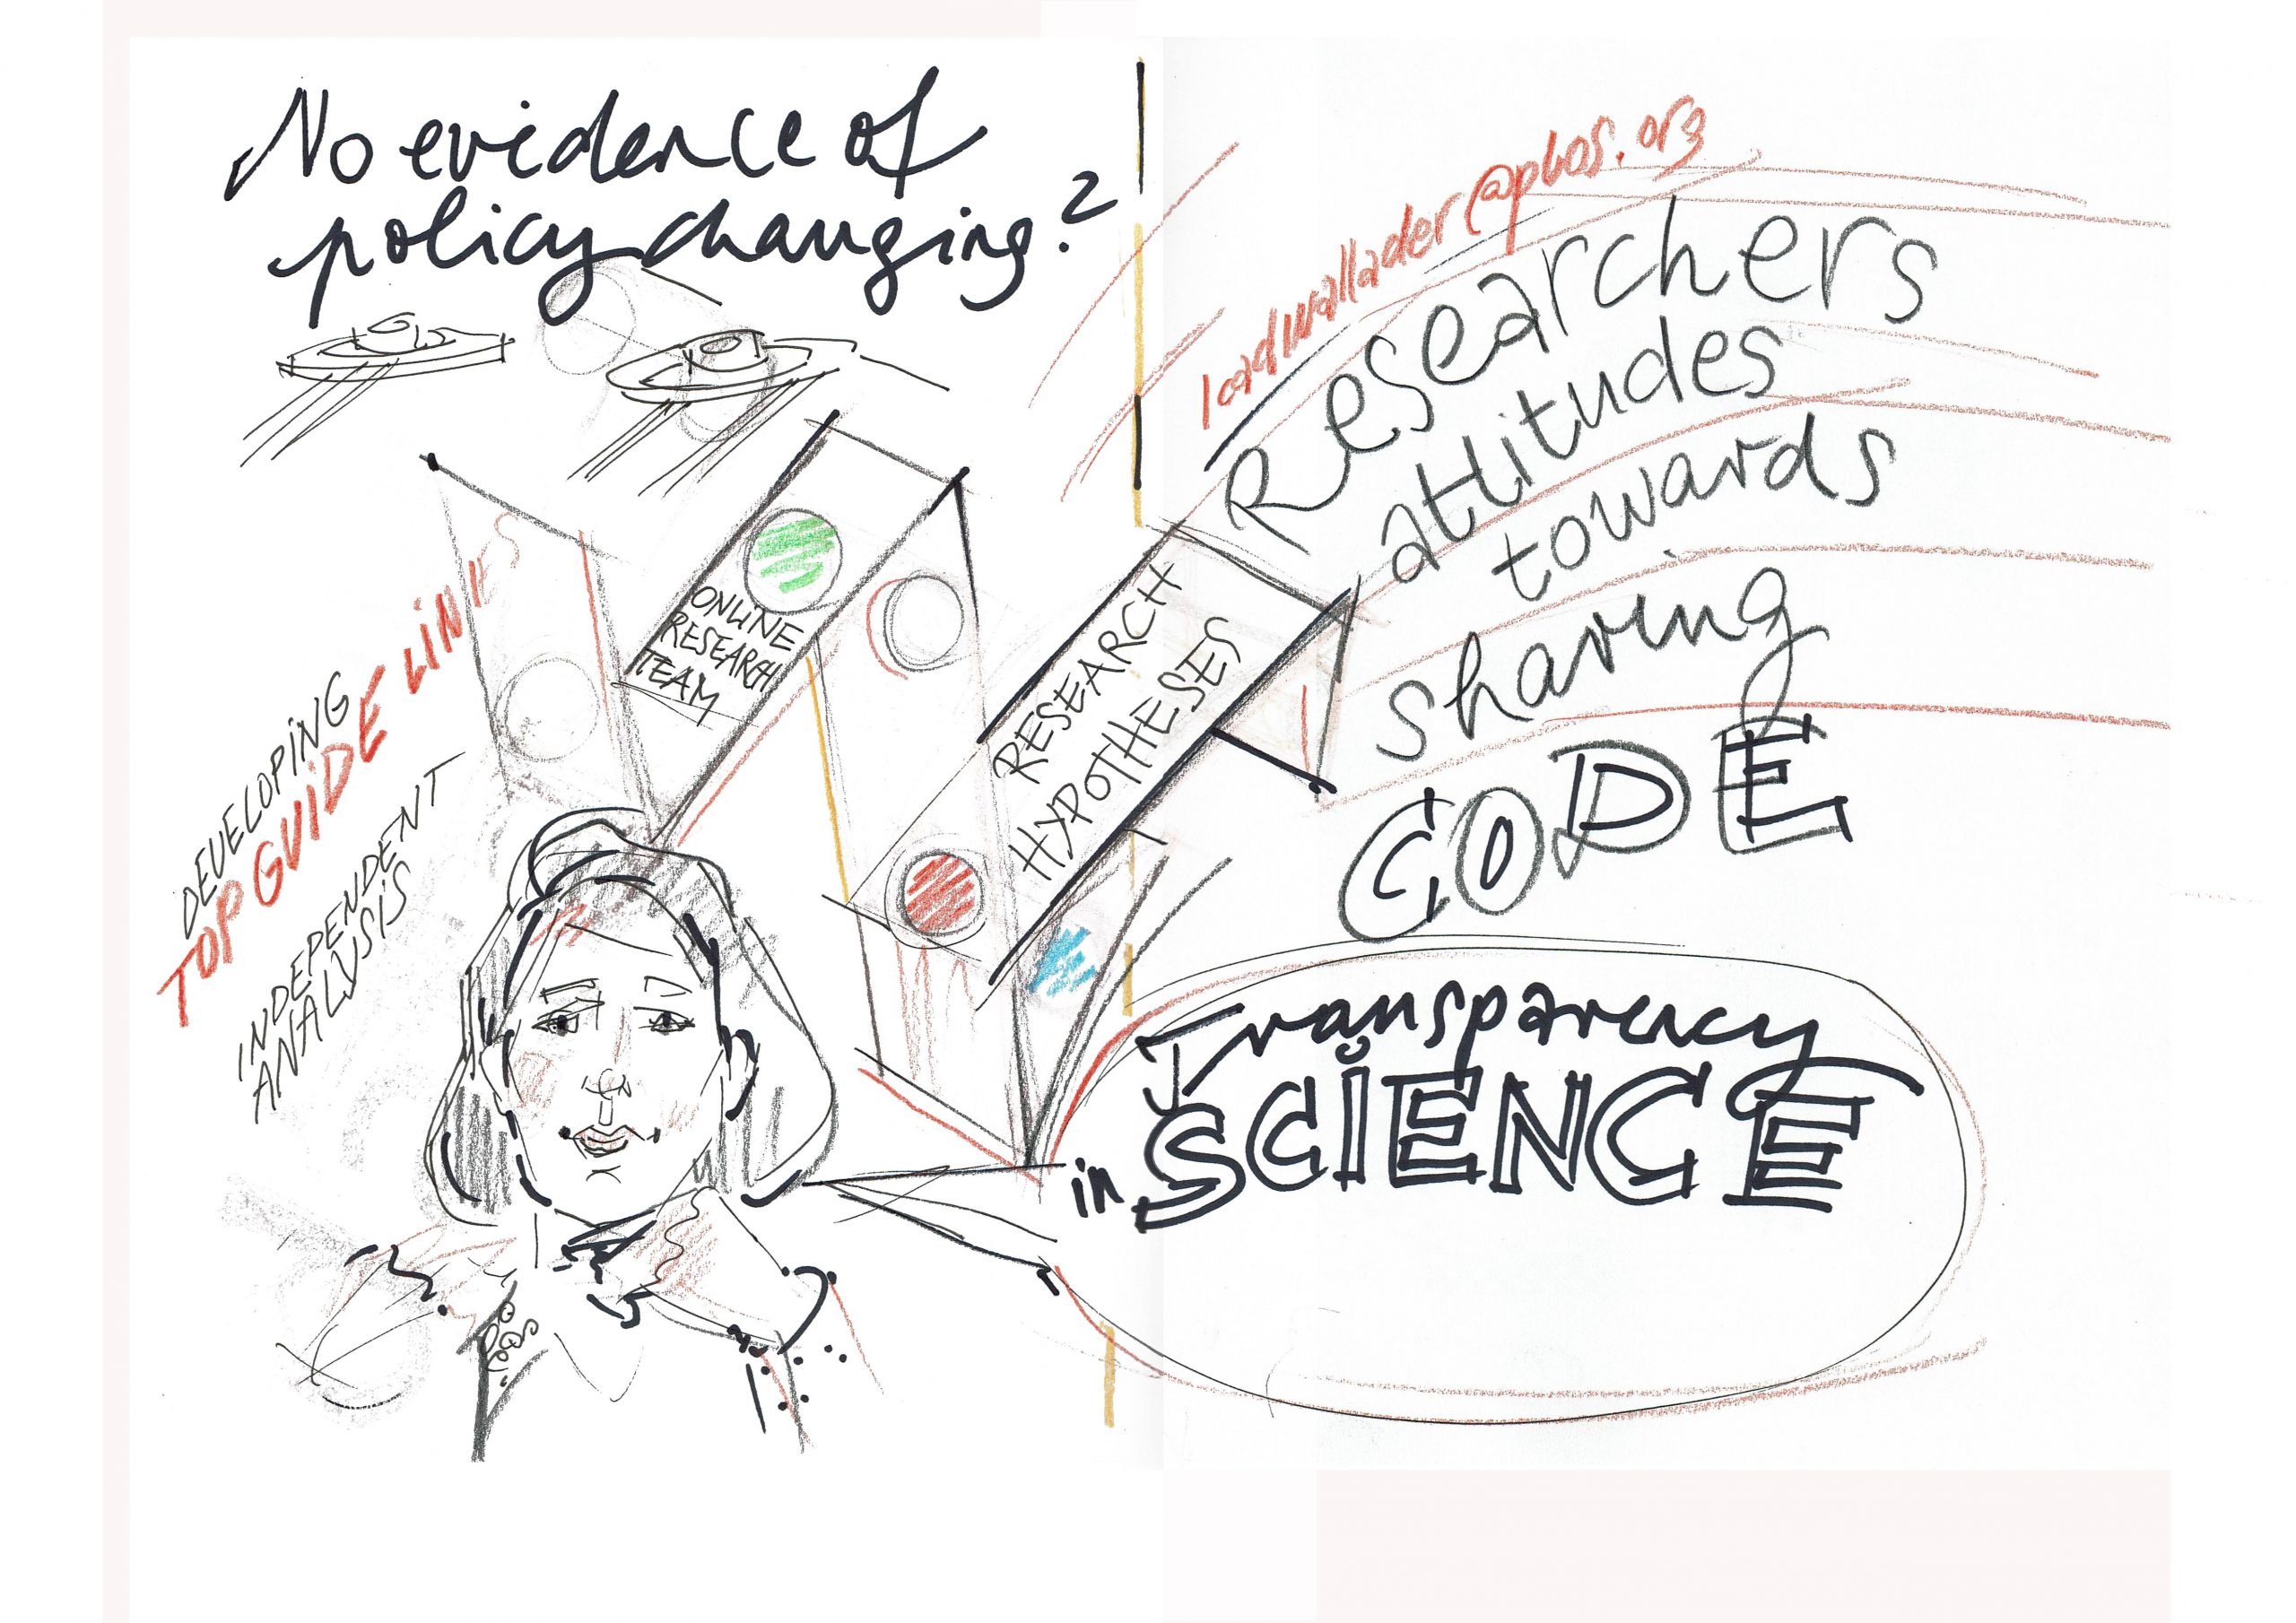 No evidence of
policy changing?
lcadwallader@plos.org
Researchers
attitudes
towards
sharing
CODE
ONLINE
RESEARCH
TEAM
RESEARCH
HYPOTHESES
DEVELOPING
TOP GUIDE LINES
INDEPENDENT
ANALYSIS
Transparency
in SCIENCE